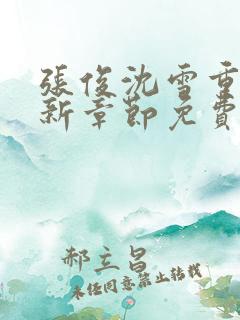 張俊沈雪重
新章節免費
郝立昌
未經同意禁止轉載